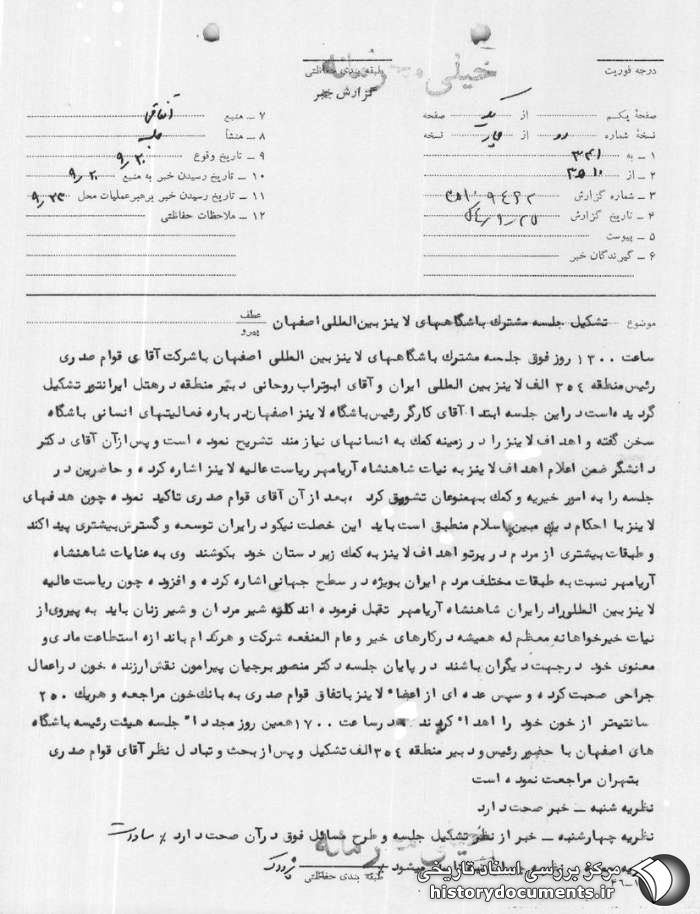 خیلی محرمانه
درجه فوریت
طبقه بندی حفاظتی
گزارش خبر
صفحهٔ یکم از یک صفحه
نسخهٔ شماره دو از چهار نسخه
۱ ـ به ۳۴۱
۲ ـ از
۳ ـ شماره گزارش
۴ ـ تاریخ گزارش
۵ ـ پیوست
۶ ـ گیرندگان خبر
۷ ـ منبع اتفاقی
۸ ـ منشأ جلسه
۹ ـ تاریخ وقوع ۹/۲۰
۱۰ ـ تاریخ رسیدن خبر به منبع ۹/۲۰
۱۱ ـ تاریخ رسیدن خبر برهبر عملیات محل ۹/۲۳
۱۲ ـ ملاحظات حفاظتی
موضوع تشکیل جلسه مشترك باشگاههای لاینز بین المللی اصفهان عطف پیرو
ساعت ۱۳۰۰ روز فوق جلسه مشترك باشگاههای لاینز بین المللی اصفهان باشرکت آقای قوام صدری
رئیس منطقه ۳۵۴ الف لاینز بین المللی ایران و آقای ابوتراب روحانی دبیر منطقه درهتل ایرانتور تشکیل
گردیده است دراین جلسه ابتدا آقای کارگر رئیس باشگاه لاینز اصفهان درباره فعالیتهای انسانی باشگاه
سخن گفته و اهداف لاینز را در زمینه کمك به انسانهای نیازمند تشریح نموده است و پس ازآن آقای دکتر
دانشگر ضمن اعلام اهداف لاینز به نیات شاهنشاه آریامهر ریاست عالیه لاینز اشاره کرده و حاضرین در
جلسه را به امور خیریه و کمك بهمنوعان تشویق کرد ،بعد ازآن آقای قوام صدری تاکید نموده چون هدفهای
لاینز با احکام دین مبین اسلام منطبق است باید این خصلت نیکو درایران توسعه و گسترش بیشتری پیدا کند
و طبقات بیشتری از مردم در پرتو اهداف لاینز به کمك زیردستان خود بکوشند وی به عنایات شاهنشاه
آریامهر نسبت به طبقات مختلف مردم ایران بویژه در سطح جهانی اشاره کرده و افزوده چون ریاست عالیه
لاینز بین المللی را درایران شاهنشاه آریامهر تقبل فرموده اند کلیه شیر مردان و شیر زنان باید به پیروی از
نیات خیرخواهانه معظم له همیشه درکارهای خیر و عام المنفعه شرکت و هرکدام باندازه استطاعت مادی و
معنوی خود درجهت دیگران باشند در پایان جلسه دکتر منصور برجیان پیرامون نقش ارزنده خون دراعمال
جراحی صحبت کرده و سپس عده ای از اعضاء لاینز باتفاق قوام صدری به بانك خون مراجعه و هریك ۲۵۰
سانتیمتر از خون خود را اهداء کردند درساعت ۱۷۰۰ همین روز مجدداً جلسه هیئت رئیسه باشگاه
های اصفهان با حضور رئیس و دبیر منطقه ۳۵۴ الف تشکیل و پس از بحث و تبادل نظر آقای قوام صدری
بتهران مراجعت نموده است
نظریه شنبه ـ خبر صحت دارد
نظریه چهارشنبه ـ خبر از نظر تشکیل جلسه و طرح مسائل فوق درآن صحت دارد
خیلی محرمانه
طبقه بندی حفاظتی
مرکز بررسی اسناد تاریخی
historydocuments.ir